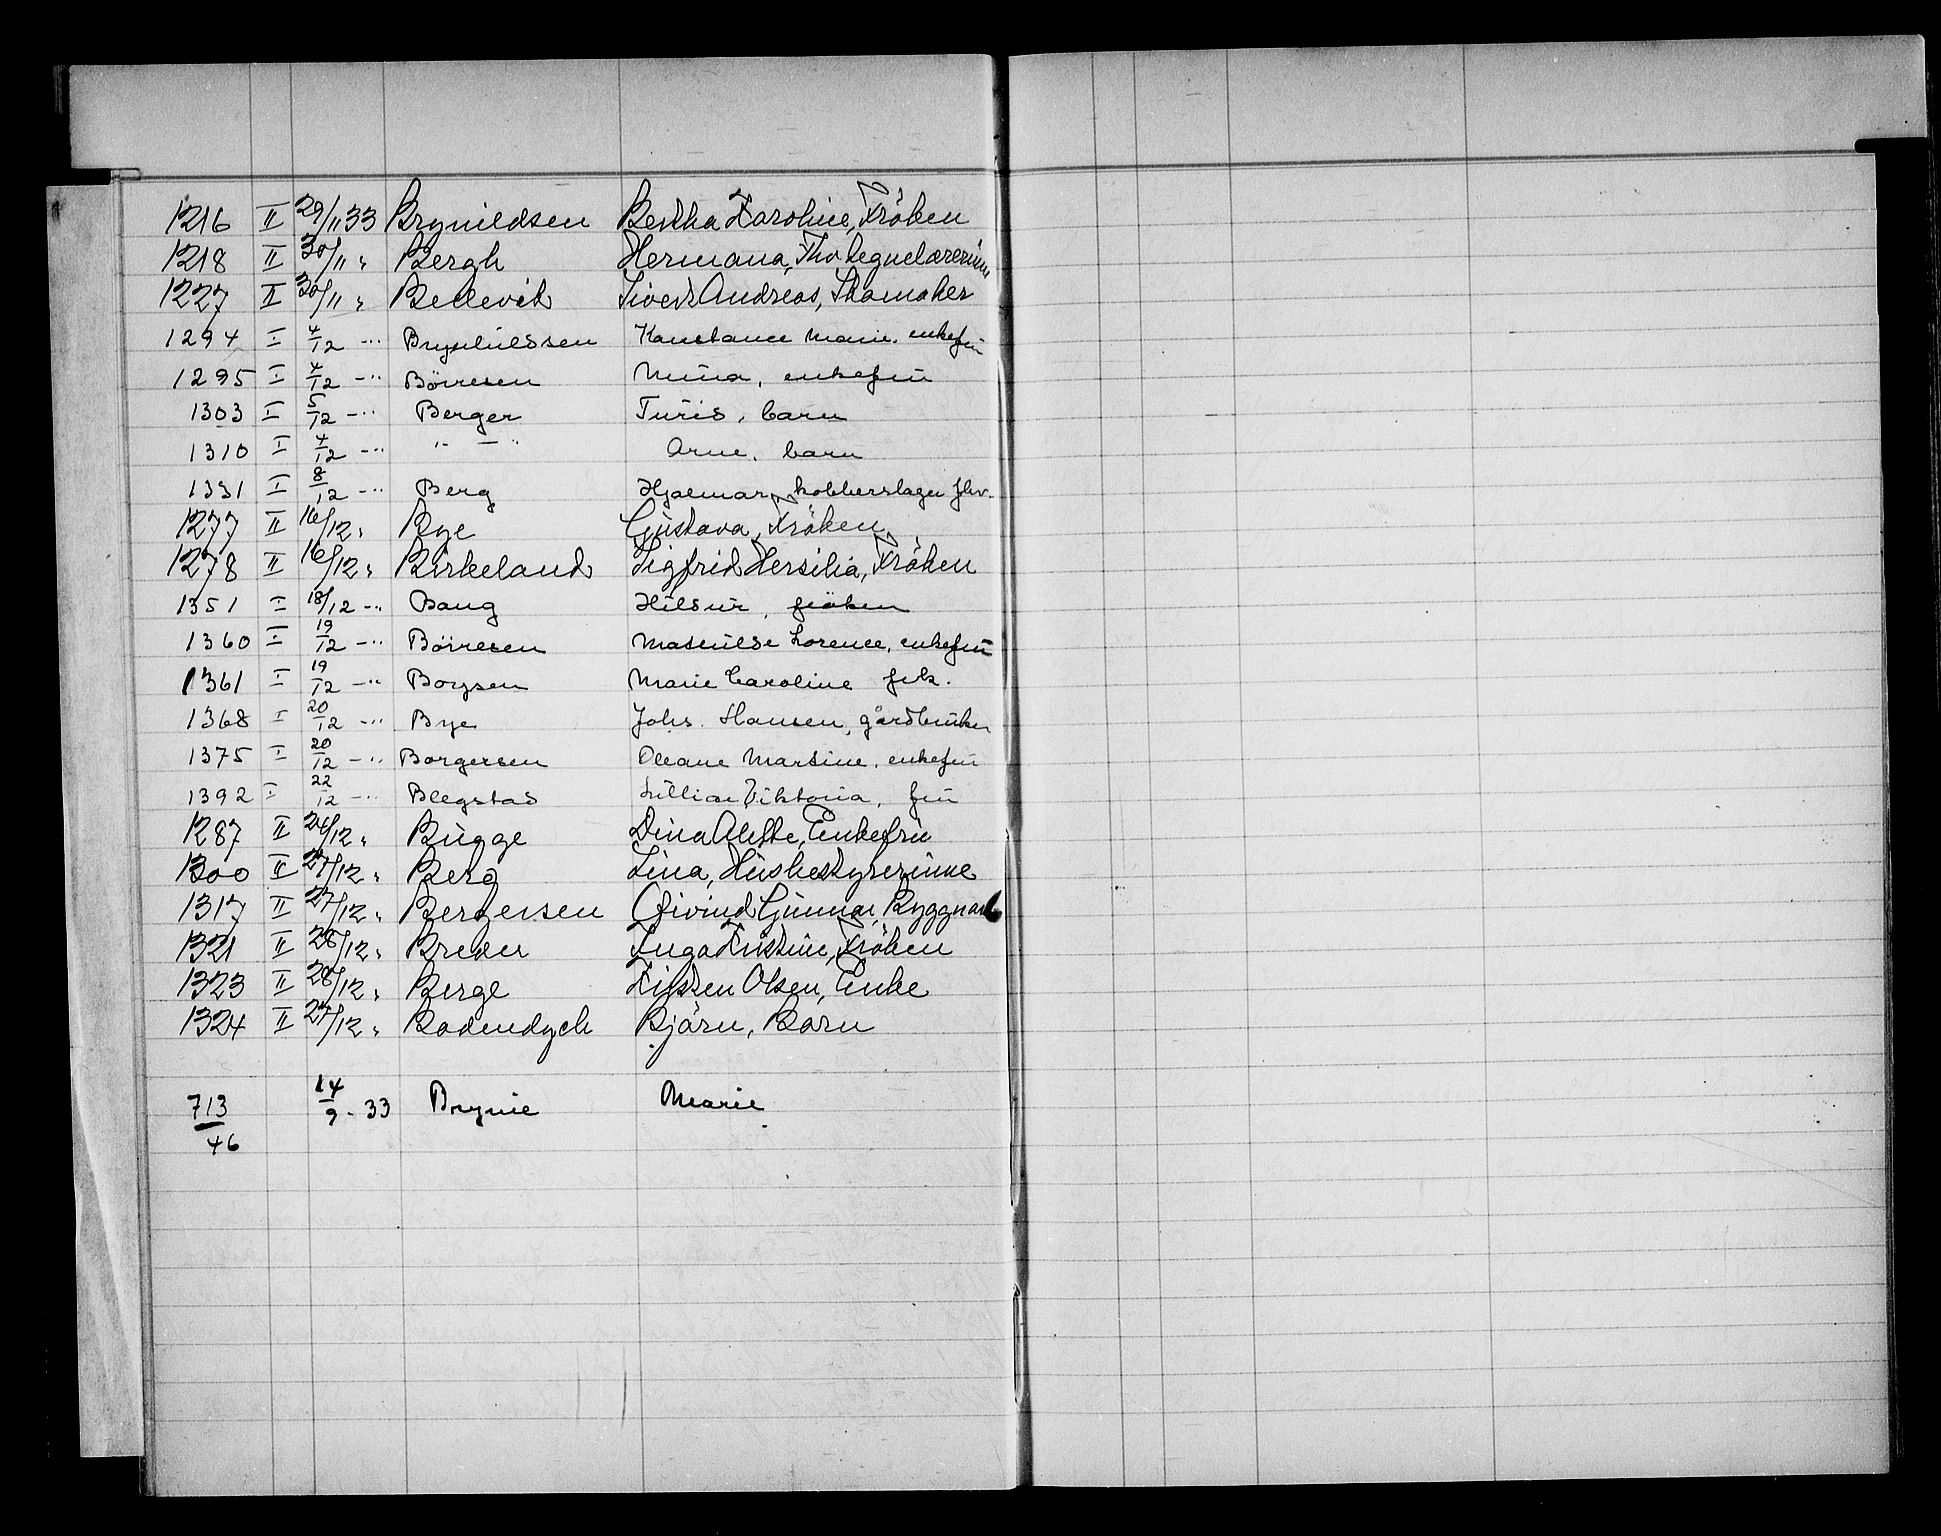 1216 II 29/11 33 Brynildsen Bertha Karoline, Fröken
1218 II 30/11 " Bergh Hermana, Fhv tegnelærerinne
1227 II 30/11 " Bellevik Sivert Andreas, Skomaker
1294 I 4/12 -" Brynhildsen Konstance Marie, enkefru
1295 I 4/12 -" Börresen Mina, enkefru
1303 I 5/12 -" Berger Turid, barn
1310 I 4/12 -" " - " Arne, barn
1331 I 8/12 -" Berg Hjalmar, kobberslager fhv.
1277 II 16/12 " Bye Gustava, Fröken
1278 II 16/12 " Birkeland Sigfrid Hersilia, Fröken
1351 I 18/12 -" Bang Hildur, fröken
1360 I 19/12 -" Börresen Mathilde Lorence, enkefru
1361 I 19/12 -" Boysen Marie Caroline frk.
1368 I 20/12 -" Bye Johs. Hansen, gårdbruker
1375 I 20/12 -" Borgersen Oleane Martine, enkefru
1392 I 22/12 -" Blegstad Lillian Viktoria, fru
1287 II 24/12 " Bugge Dina Alette, Enkefru
1300 II 27/12 " Berg Lina, Husbestyrerinne
1317 II 27/12 " Bergersen Öivind Gunnar, Byggnads
1321 II 28/12 " Breder Inga Kristine, Fröken
1323 II 28/12 " Berge Kirsten Olsen, Enke
1324 II 27/12 " Badendyck Björn, Barn
713/46 14/9 - 33 Brynie Marie